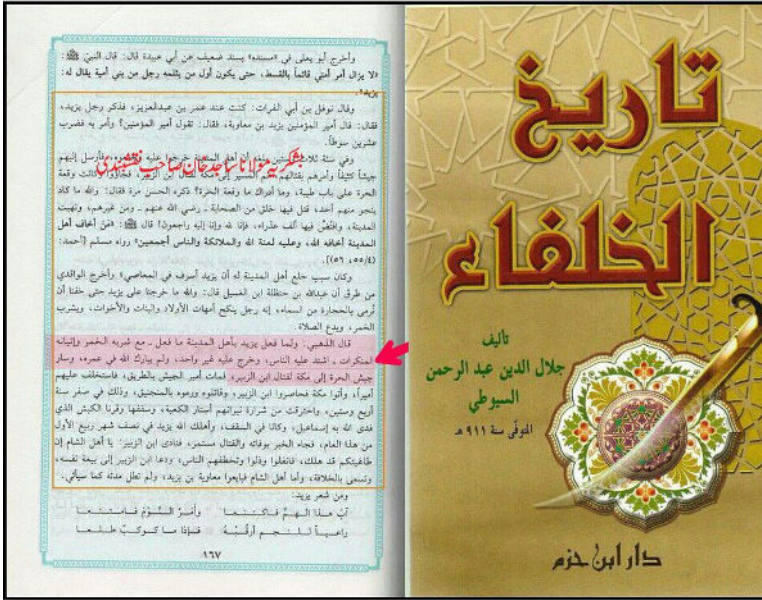 وأخرج أبو يعلى في «مسنده» بسند ضعيف عن أبي عبيدة قال: قال النبيّ ﷺ:
«لا يزال أمر أمتي قائماً بالقسط، حتى يكون أول من يثلمه رجل من بني أمية يقال له:
يزيد».
وقال نوفل بن أبي الفرات: كنت عند عمر بن عبدالعزيز، فذكر رجل يزيد،
فقال: قال أمير المؤمنين يزيد بن معاوية، فقال: تقول أمير المؤمنين؟ وأمر به فضرب
عشرين سوطاً.
وفي سنة ثلاث وستين بلغه أن أهل المدينة خرجوا عليه فأرسل إليهم
بشكريہ مولانا ساجد خان صاحب نقشبندی
جيشاً كثيفاً وأمرهم بقتالهم ثم المسير إلى مكة ابن الزبير، فجاؤوا وكانت وقعة
الحرة على باب طيبة، وما أدراك ما وقعة الحرة؟ ذكره الحسن مرة فقال: والله ما كاد
ينجو منهم أحد، قتل فيها خلق من الصحابة ـ رضي الله عنهم ـ ومن غيرهم، ونهبت
المدينة، وافتُضّ فيها ألف عذراء، فإنا لله وإنا إليه راجعون! قال ﷺ: «مَنْ أخاف أهل
المدينة أخافه الله، وعليه لعنة الله والملائكة والناس أجمعين» رواه مسلم (أحمد:
(٥٥/٤، ٥٦)].
وكان سبب خلع أهل المدينة له أن يزيد أسرف في المعاصي؛ وأخرج الواقدي
من طرق أن عبدالله بن حنظلة ابن الغسيل قال: والله ما خرجنا على يزيد حتى خفنا أن
نُرمى بالحجارة من السماء، إنه رجل ينكح أمهات الأولاد والبنات والأخوات، ويشرب
الخمر، ويدع الصلاة.
قال الذهبي: ولما فعل يزيد بأهل المدينة ما فعل ـ مع شربه الخمر وإتيانه
المنكرات ـ اشتد عليه الناس، وخرج عليه غير واحد، ولم يبارك الله في عمره، وسار
جيش الحرة إلى مكة لقتال ابن الزبير، فمات أمير الجيش بالطريق، فاستخلف عليهم
أميراً، وأتوا مكة فحاصروا ابن الزبير، وقاتلوه ورموه بالمنجنيق، وذلك في صفر سنة
أربع وستين، واحترقت من شرارة نيرانهم أستار الكعبة، وسقفها وقرنا الكبش الذي
فدى الله به إسماعيل، وكانا في السقف، وأهلك الله يزيد في نصف شهر ربيع الأول
من هذا العام، فجاء الخبر بوفاته والقتال مستمر، فنادى ابن الزبير: يا أهل الشام إن
طاغيتكم قد هلك، فانفلوا وذلوا وتخطفهم الناس، ودعا ابن الزبير إلى بيعة نفسه،
وتسمى بالخلافة، وأما أهل الشام فبايعوا معاوية بن يزيد، ولم تطل مدته كما سيأتي.
ومن شعر يزيد:
آبَ هذا الهمُّ فاكتنعا وأمرَّ النَّوْمَ فامتنعا
راعياً للنجم أرقبُهُ فإذا ما كوكبٌ طلعا
١٦٧
تاريخ
الخلفاء
تأليف
جلال الدين عبد الرحمن
السيوطي
المتوفى سنة ٩١١ هـ
دار ابن حزم